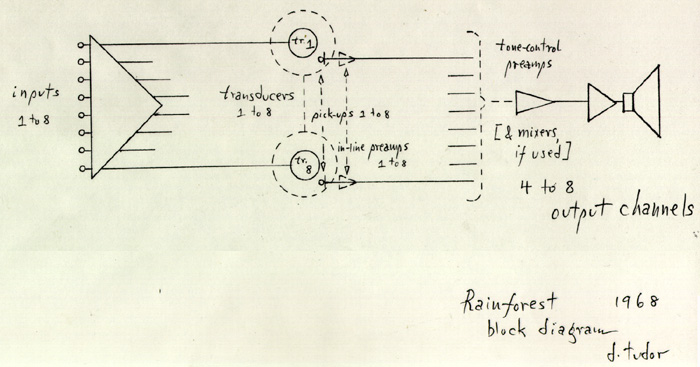 inputs
1 to 8
tr. 1
transducers
1 to 8
pick-ups 1 to 8
in-line preamps
1 to 8
tr. 8
tone-control
preamps
[& mixers,
if used]
4 to 8
output channels
Rainforest 1968
block diagram
d. tudor